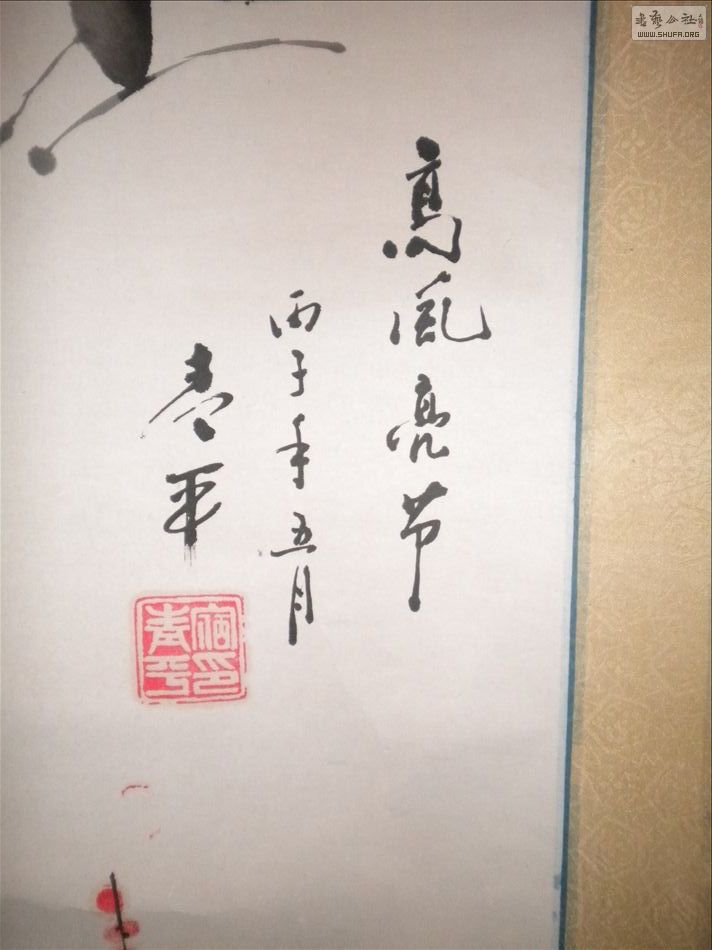 書藝公社
WWW.SHUFA.ORG
高風亮节
丙子年五月
平